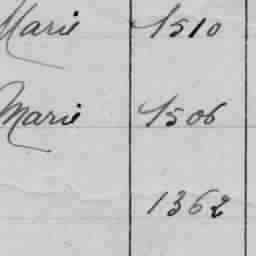 Marie 1510
Marie 1506
1362